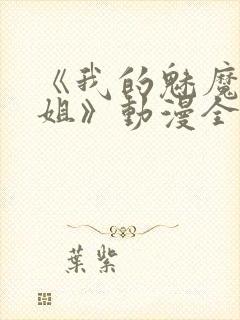 《我的魅魔
姐》動漫全
葉紫